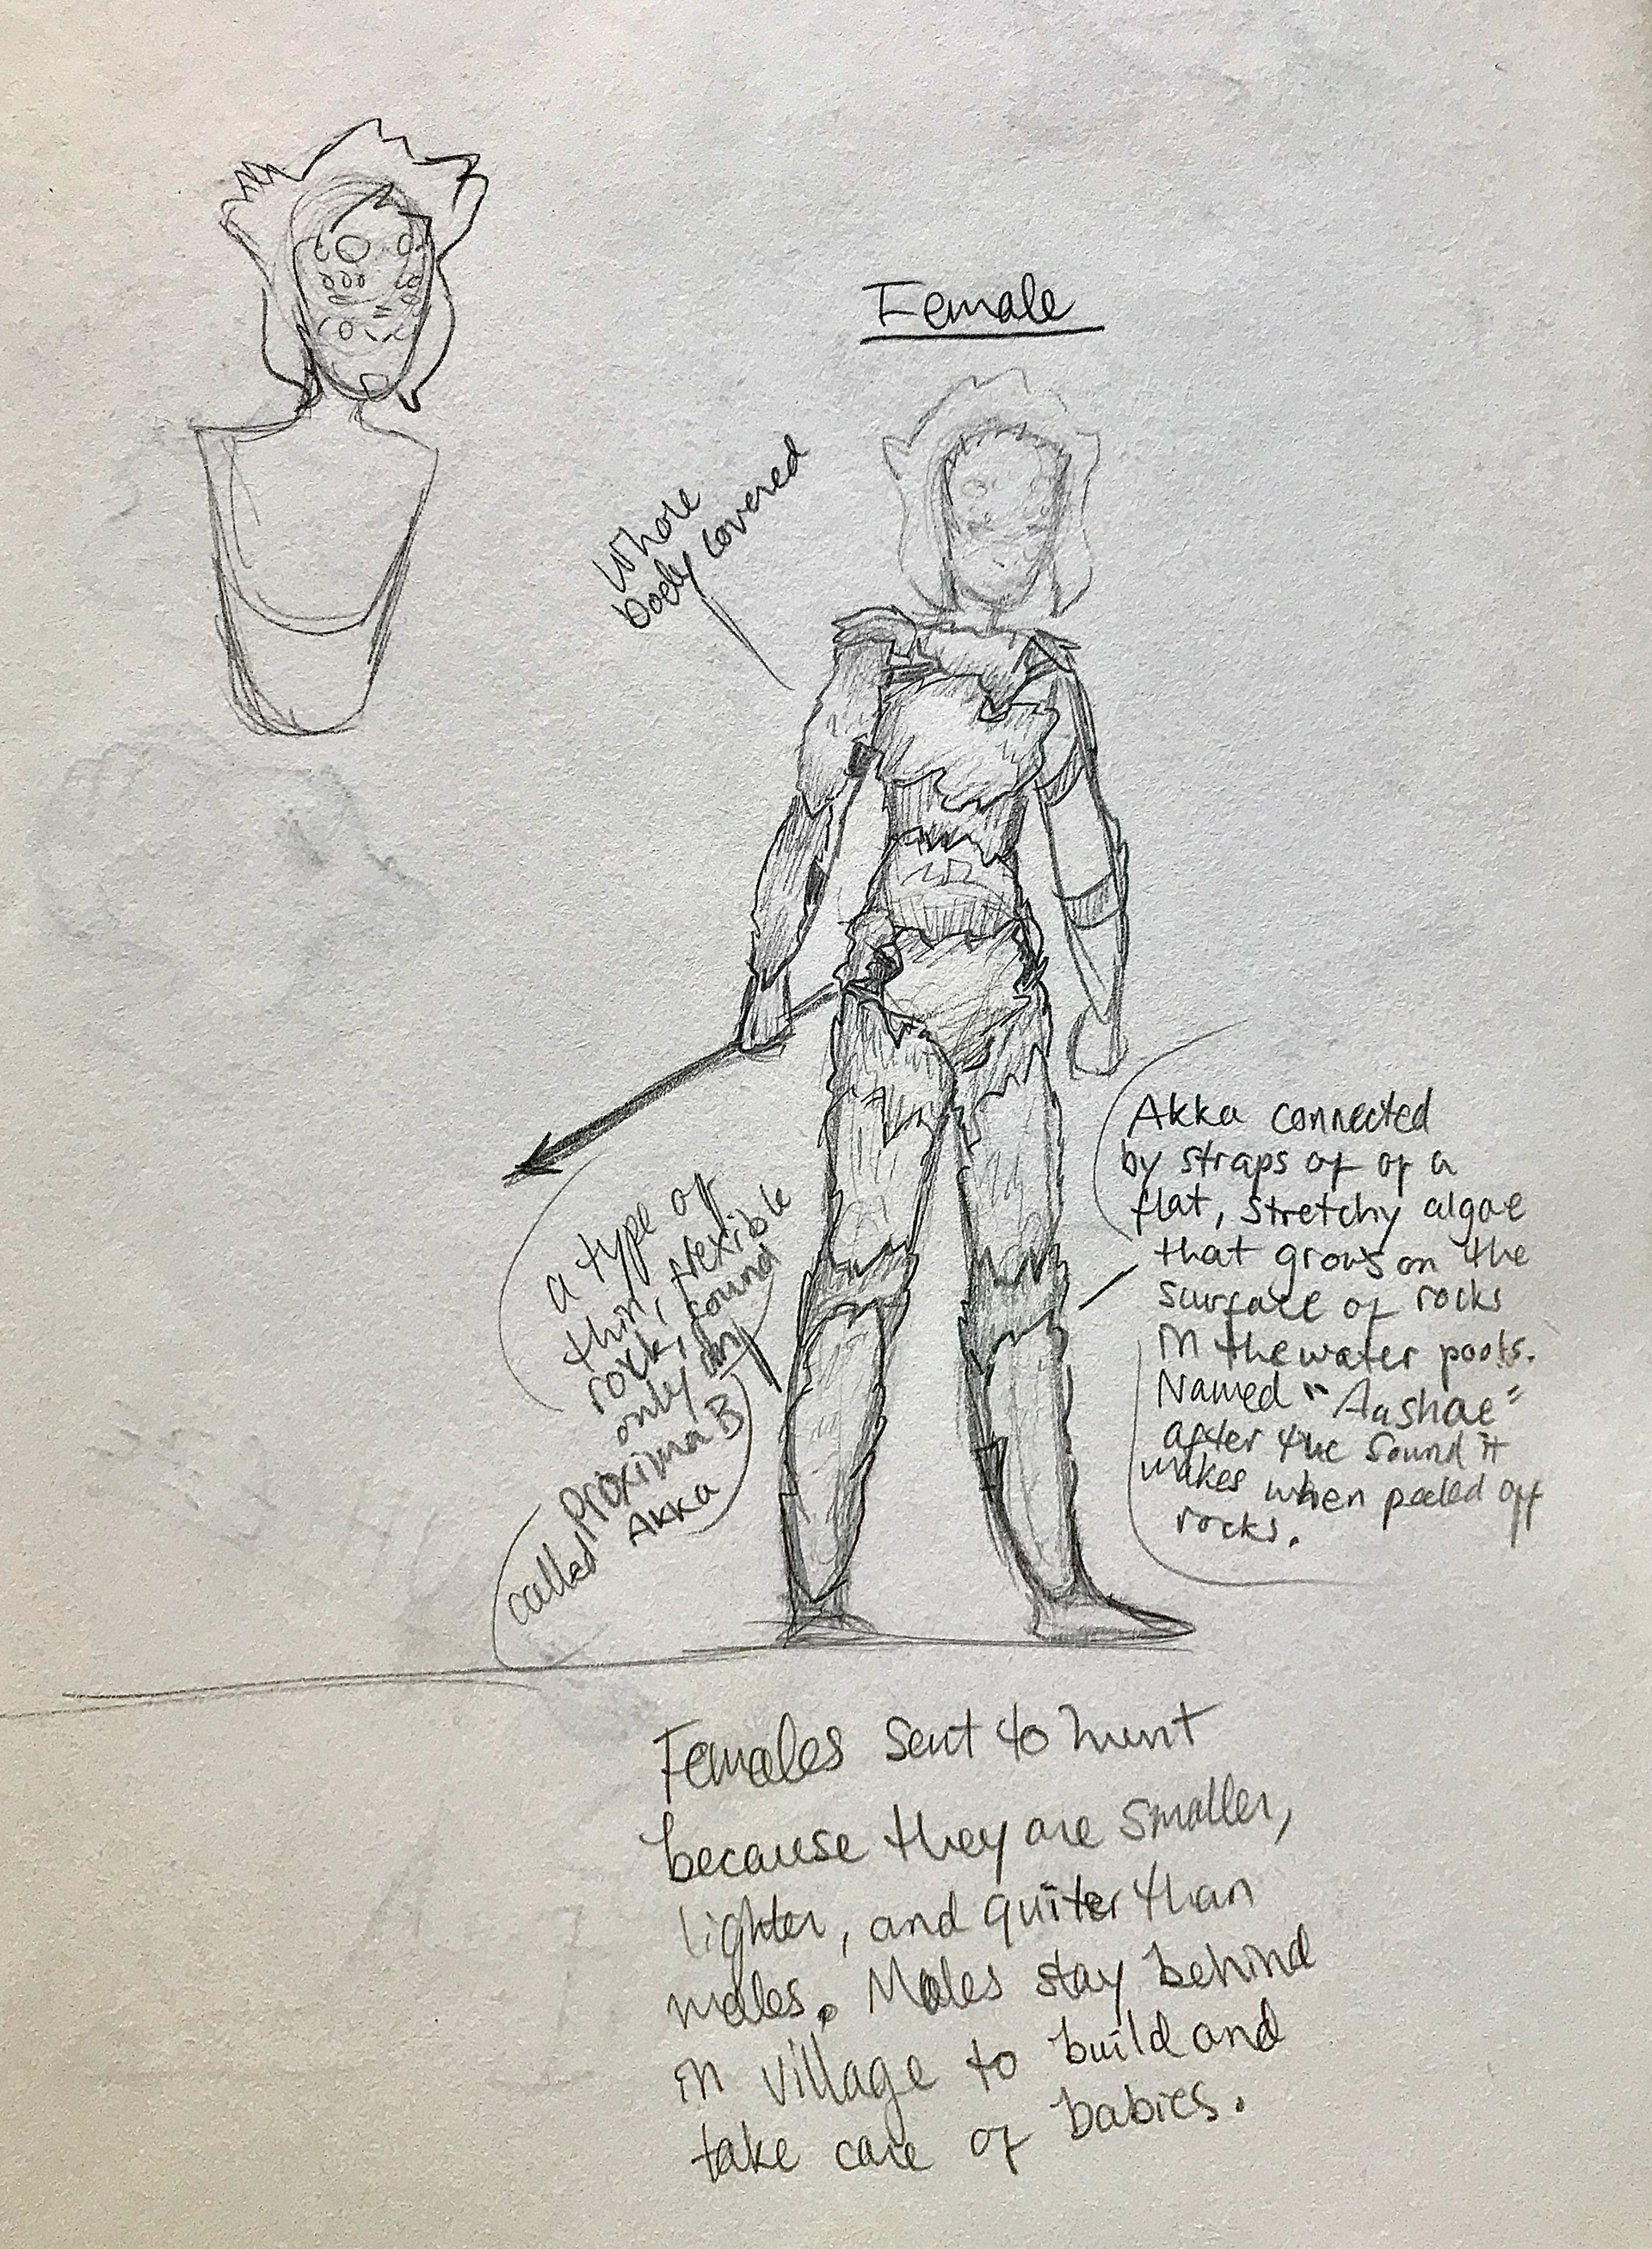 Female
Whole
body covered
Akka connected
by straps of of a
flat, stretchy algae
that grows on the
surface of rocks
in the water pools.
Named "Aashae"
after the sound it
makes when peeled off
rocks.
a type of
thin, flexible
rock, found
only on
Proxima B
called Akka
Females sent to hunt
because they are smaller,
lighter, and quiter than
males. Males stay behind
in village to build and
take care of babies.